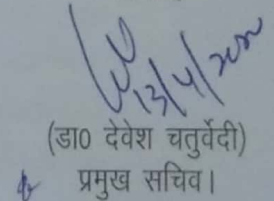 13/4/2020
(डा0 देवेश चतुर्वेदी)
प्रमुख सचिव।